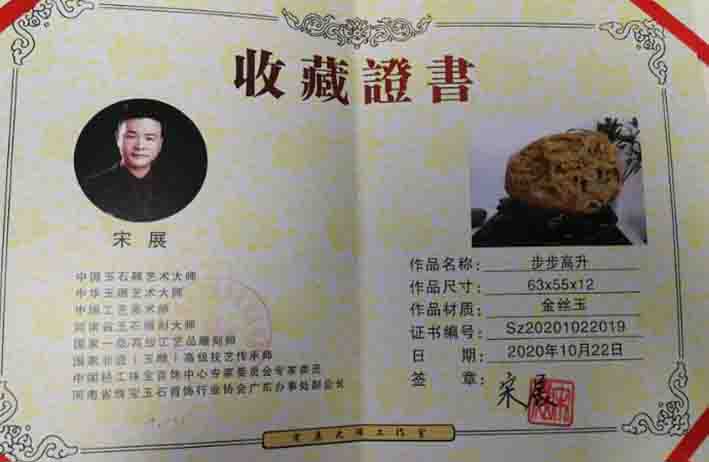 收藏證書
宋展
中国玉石雕艺术大师
中华玉雕艺术大师
中国工艺美术师
河南省玉石雕刻大师
国家一级高级工艺品雕刻师
国家非遗（玉雕）高级技艺传承师
中国轻工珠宝首饰中心专家委员会专家委员
河南省珠宝玉石首饰行业协会广东办事处副会长
作品名称：步步高升
作品尺寸：63x55x12
作品材质：金丝玉
证书编号：Sz20201022019
日期：2020年10月22日
签章：宋展
宋展大师工作室